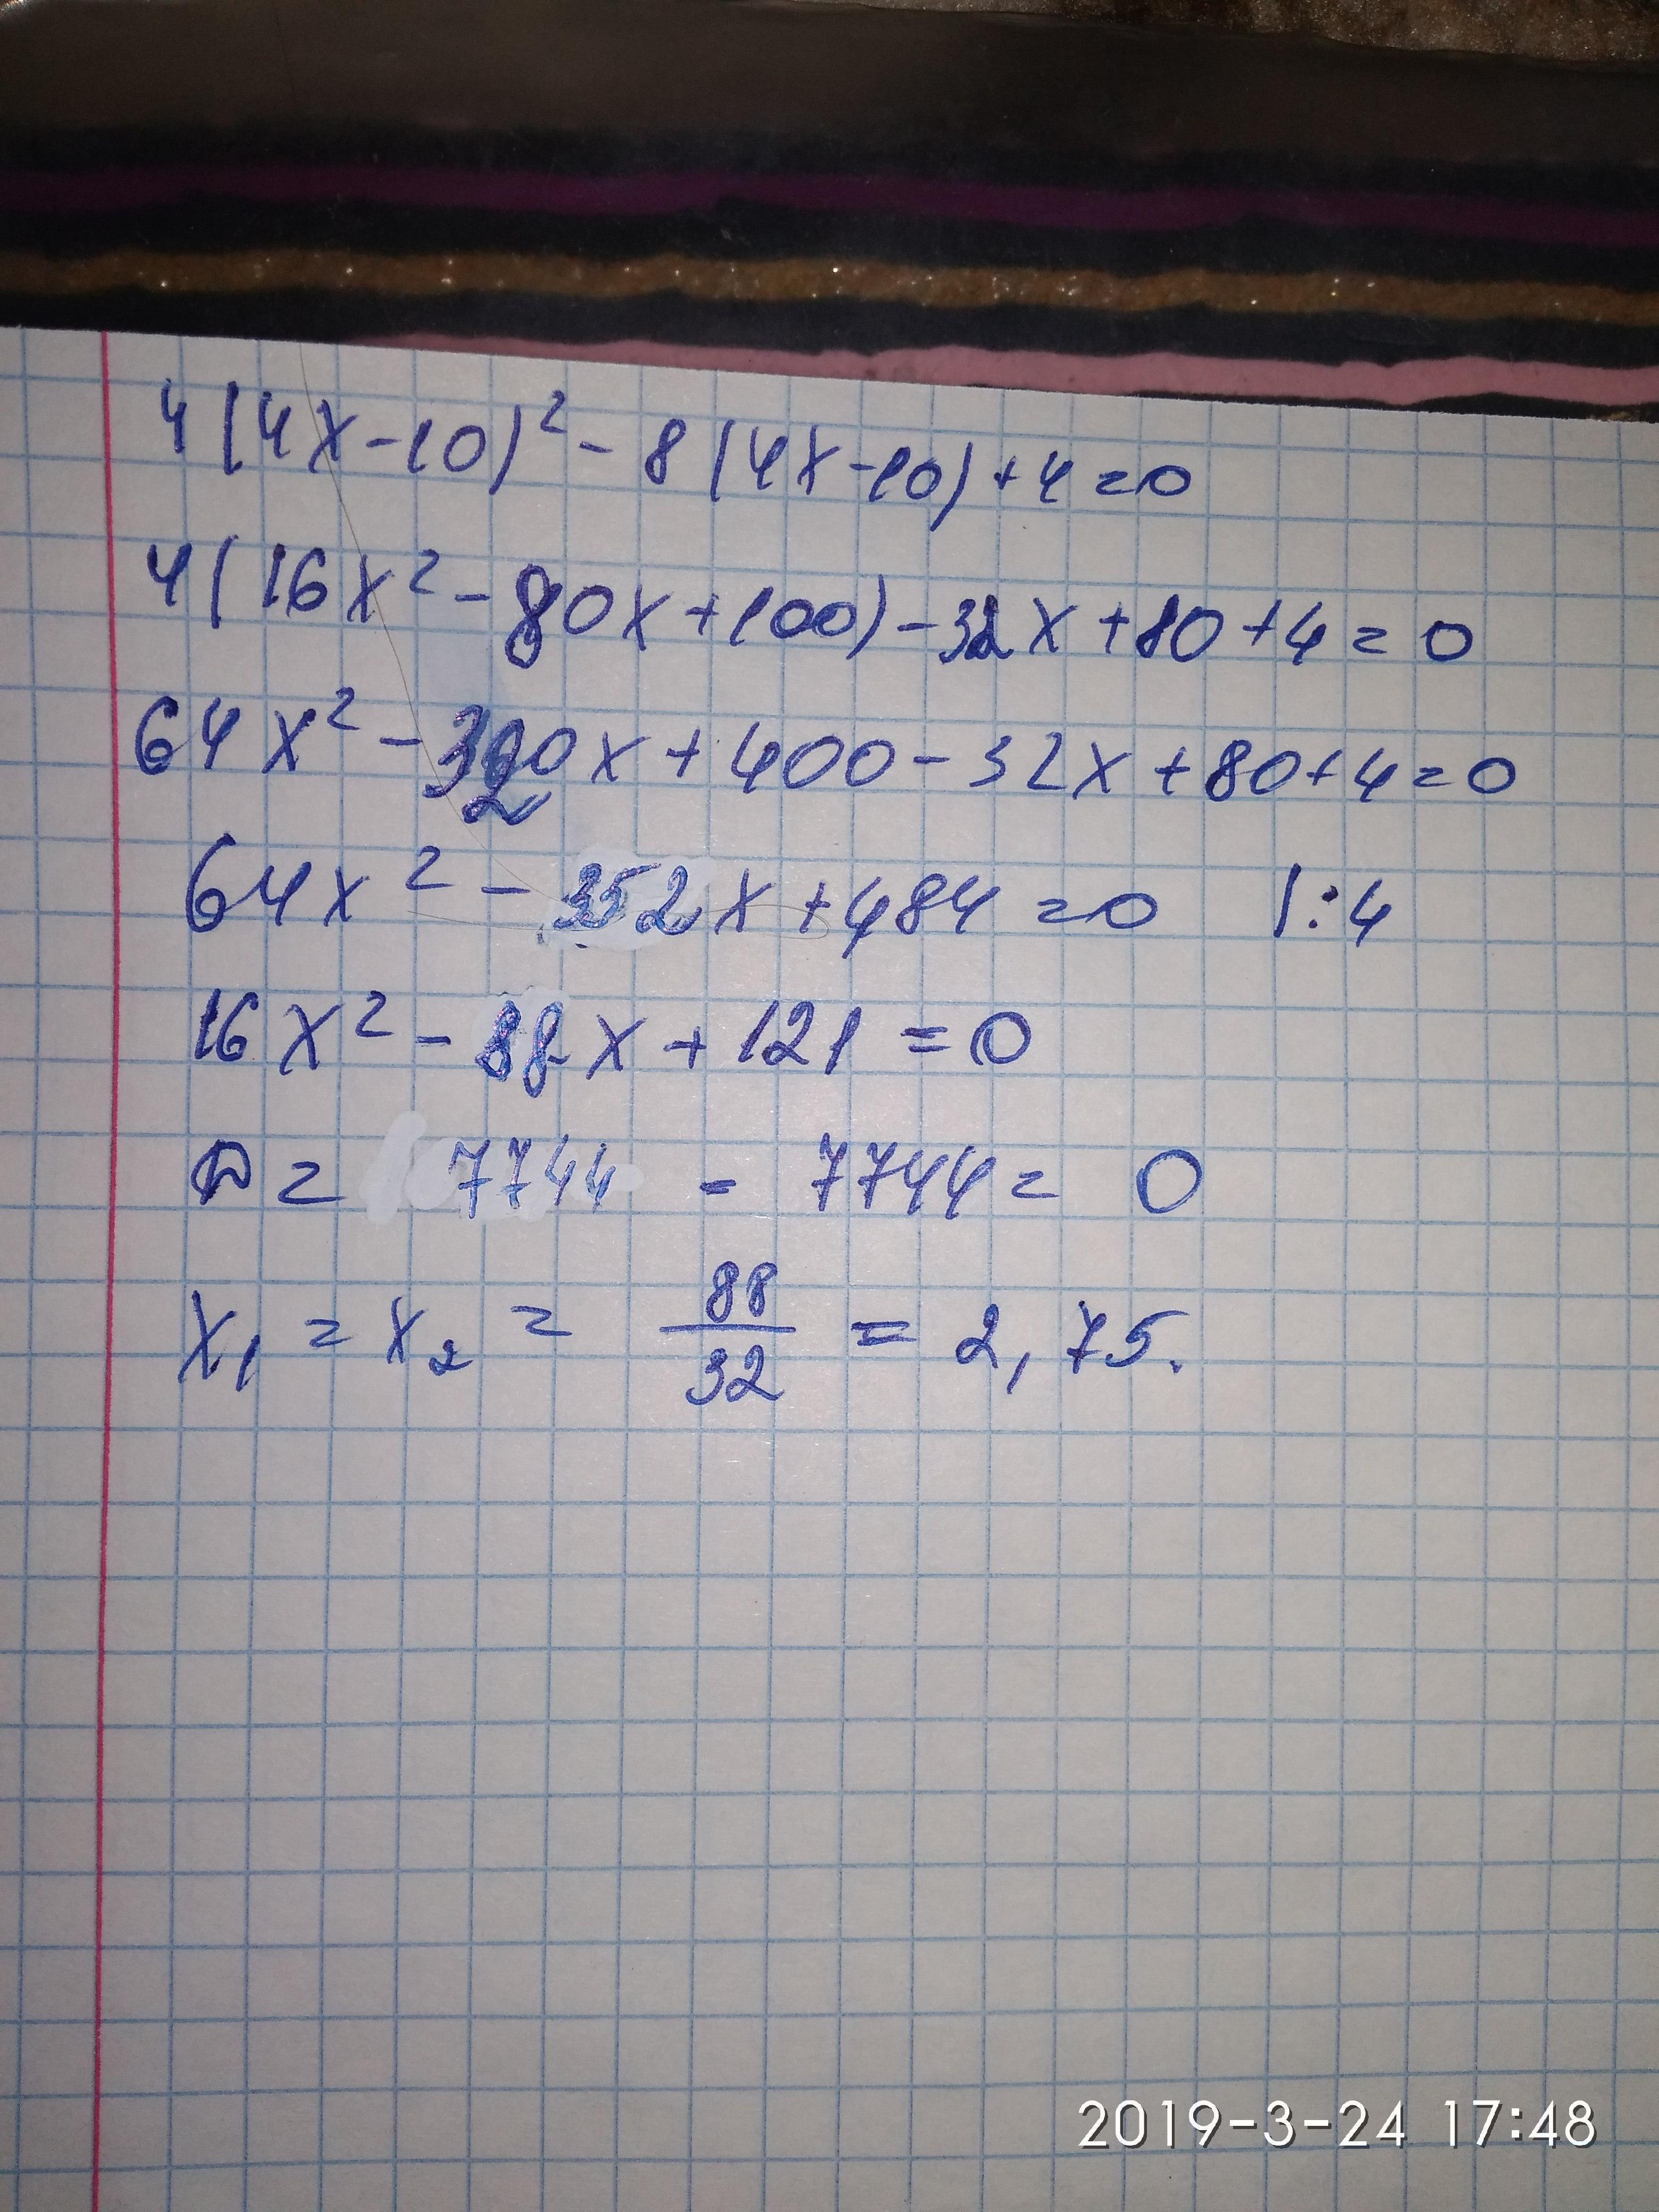 4(4x-10)² - 8(4x-10)+4=0
4(16x²-80x+100)-32x+80+4=0
64x²-320x+400-32x+80+4=0
64x²-352x+484=0 |:4
16x²-88x+121=0
D= 7744 - 7744= 0
x₁=x₂= 88/32 = 2,75.
2019-3-24 17:48